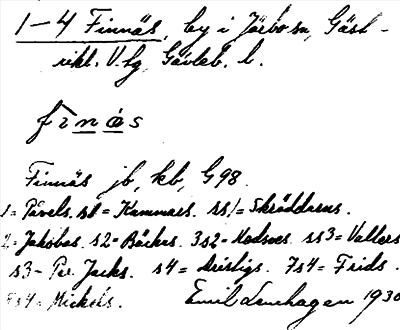 1–4 Finnäs, by i Järbo sn, Gäst-
rikl. V. tg, Gävleb. l.
fìnás
Finnäs jb, kb, G98.
1= Påvels. s1= Kammars. ss1= Skräddarns.
2= Jakobas. s2= Backas. 3s2= ss3= Valters
s3= Per Jacks. s4= 7s4= Frids.
8s4= Mickels. Emil Lenhagen 1930